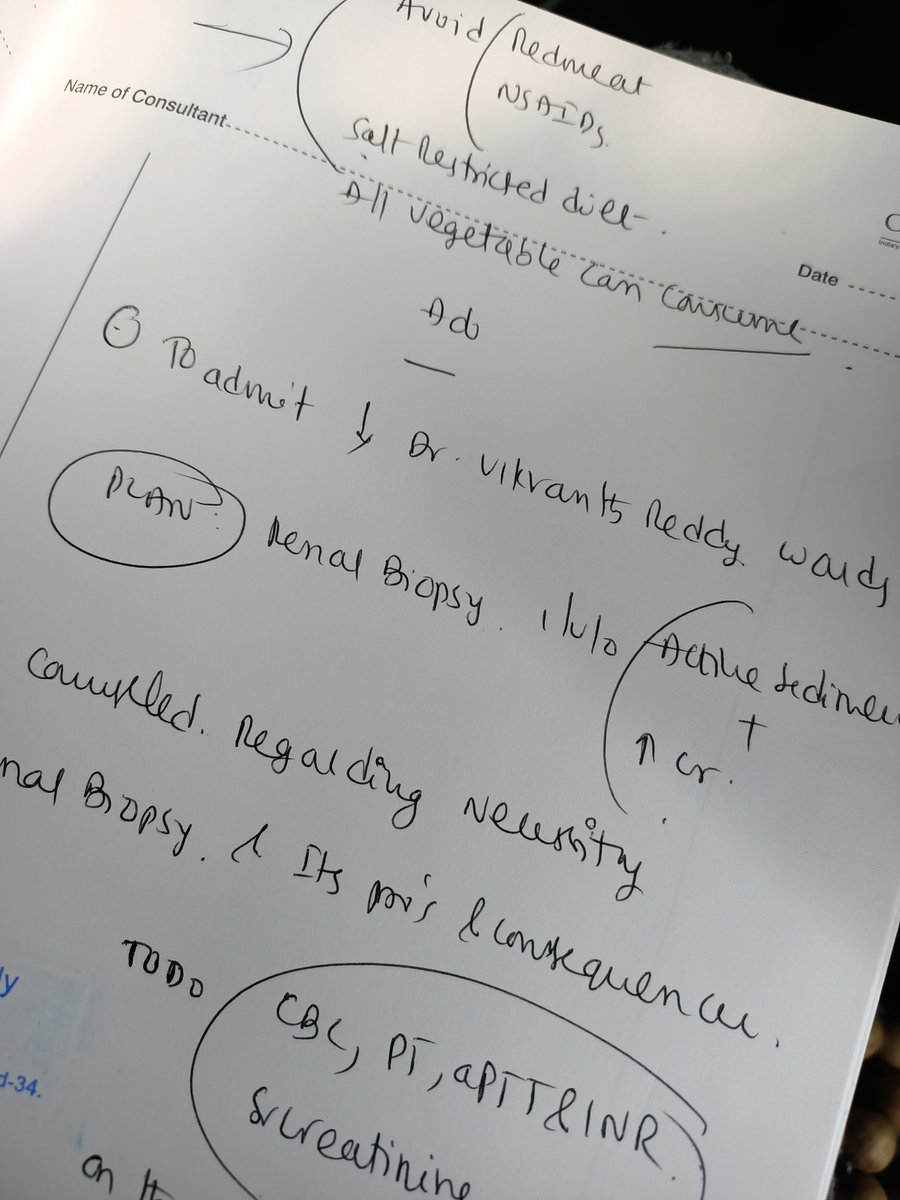 Avoid Redmeat
NSAIDs.
Name of Consultant
Salt Restricted diet.
All vegetable can consume
Date
Adv
To admit ↓ Dr. Vikranth Reddy wards
PLAN: Renal Biopsy. i/v/o Active Sedimen
+
↑ cr.
Counselled. Regarding Necessity
nal Biopsy. & Its pro's & consequences.
TODO
CBC, PT, aPTT & INR
Sr creatinine
y
d-34.
on